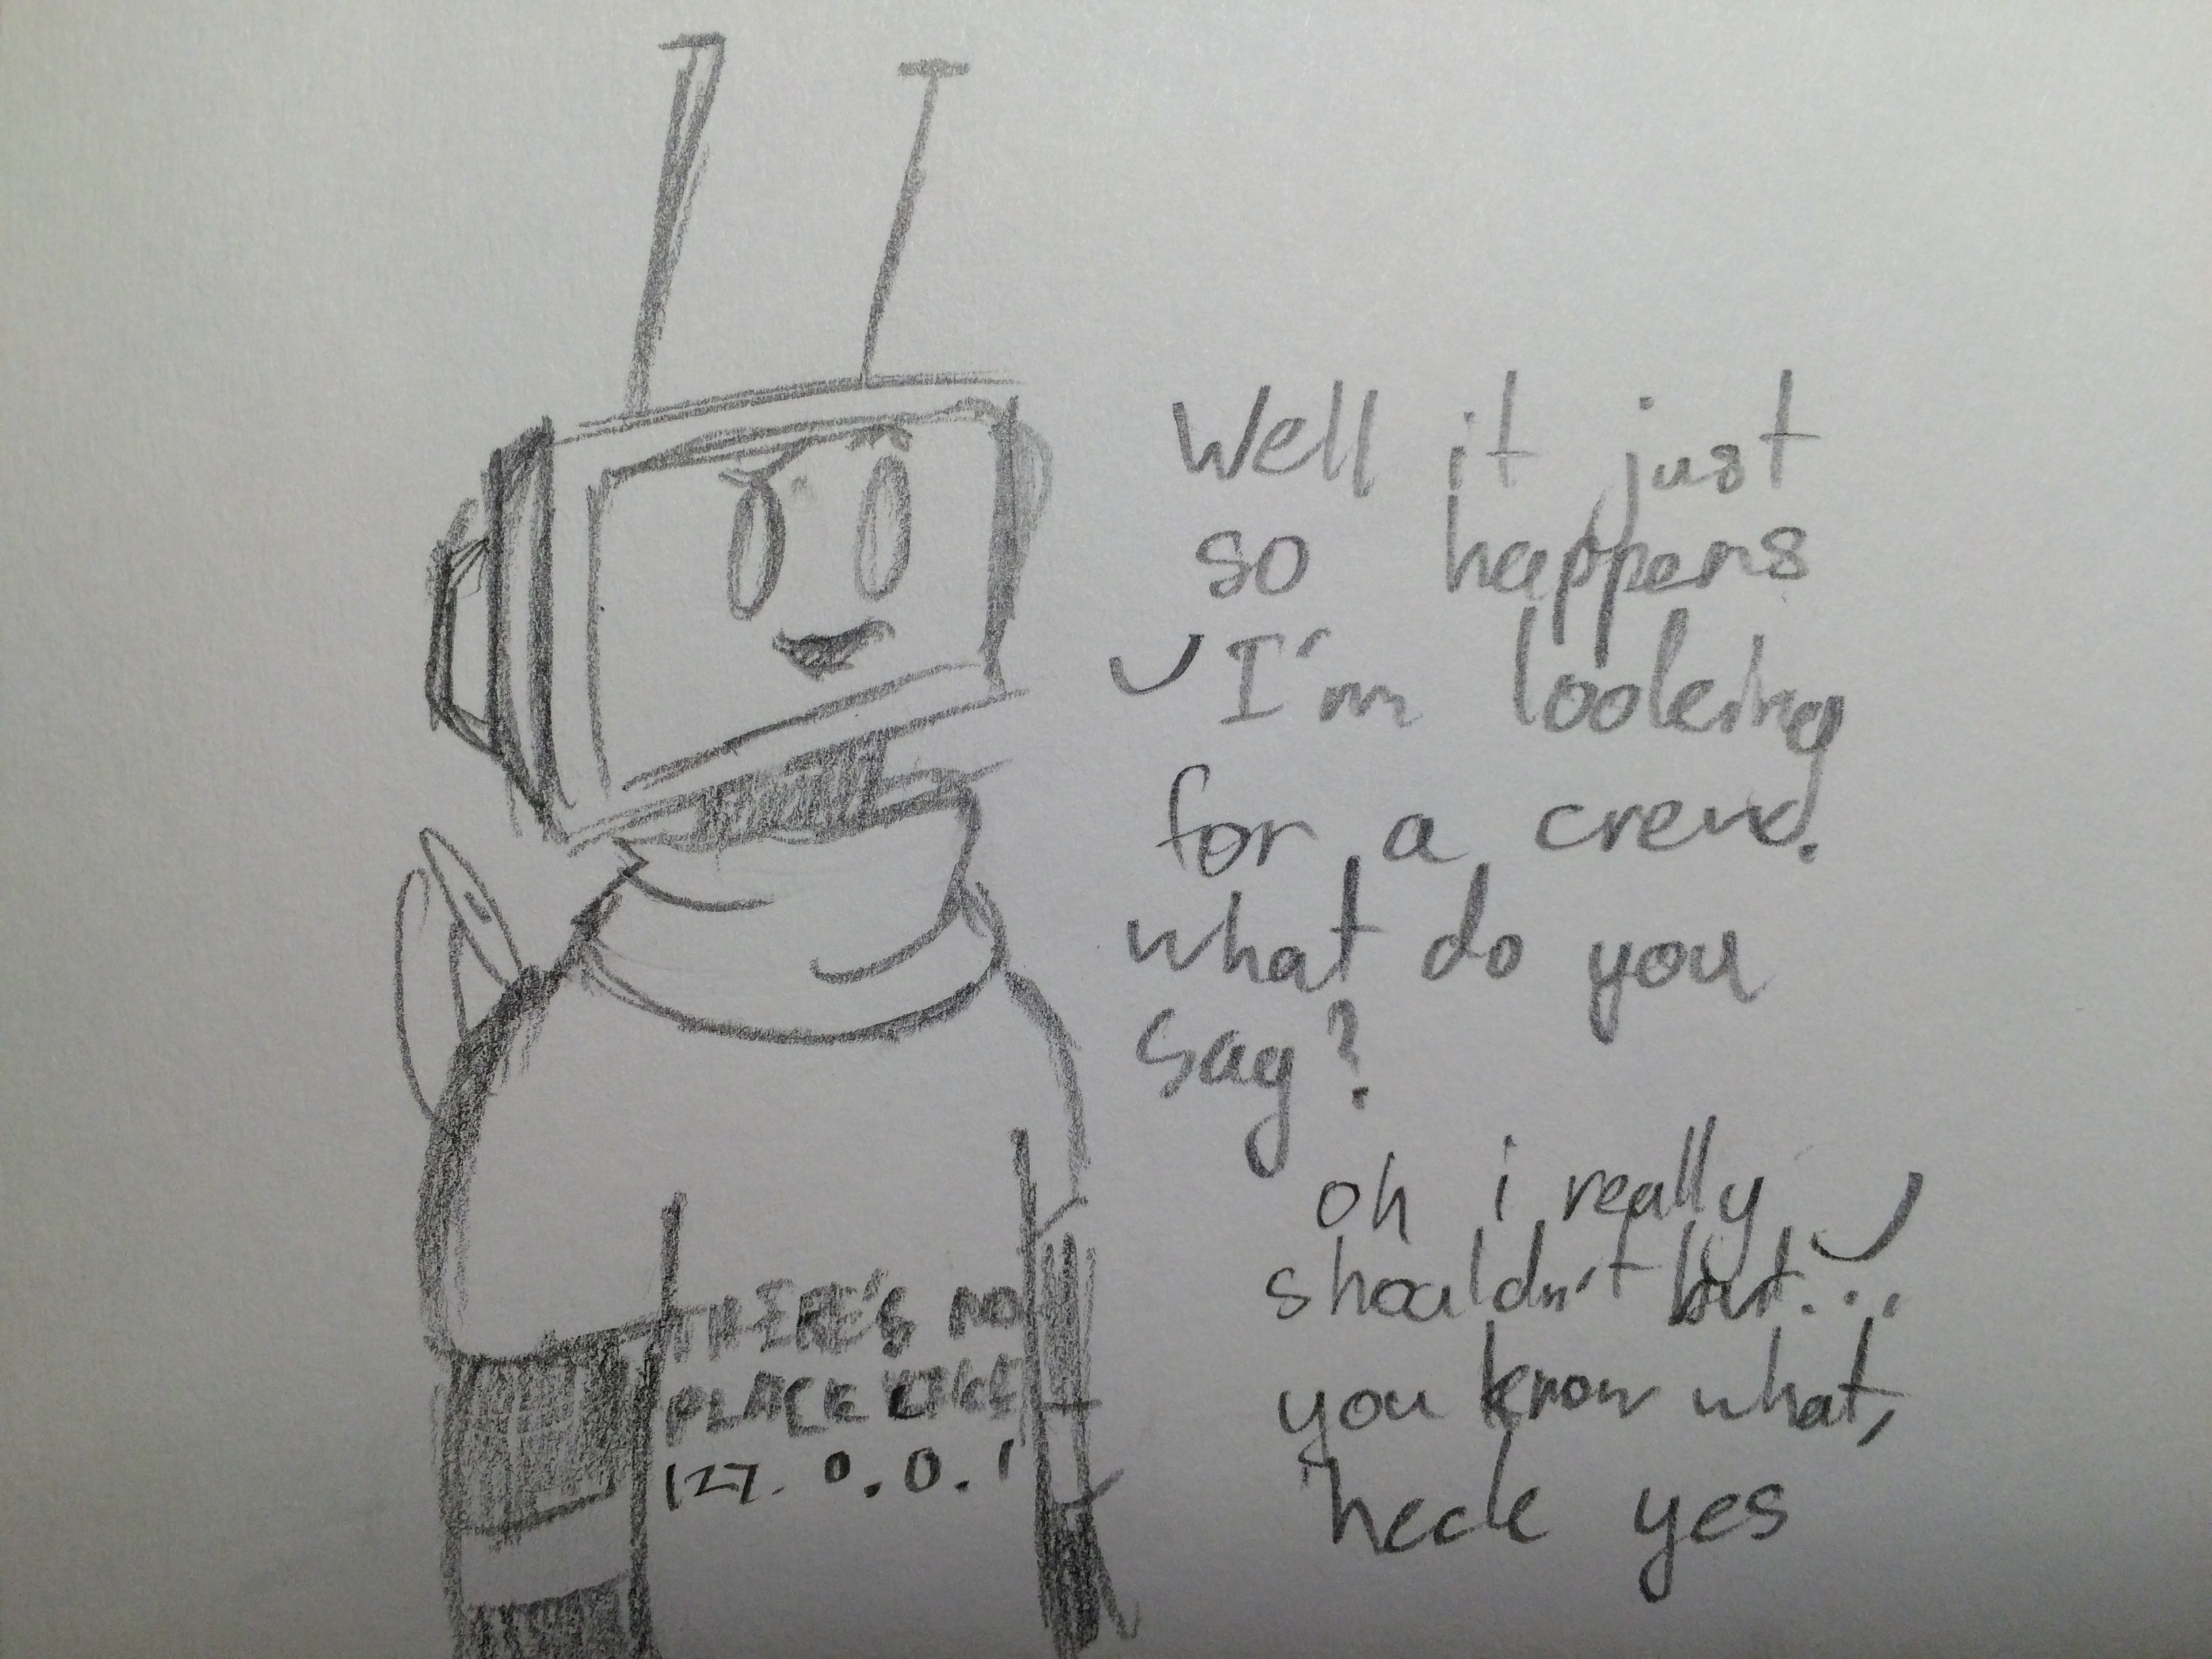 Well it just
so happens
I'm looking
for a crew.
what do you
say?
oh i really
shouldn't but...
you know what,
heck yes
THERE'S NO
PLACE LIKE
127.0.0.1